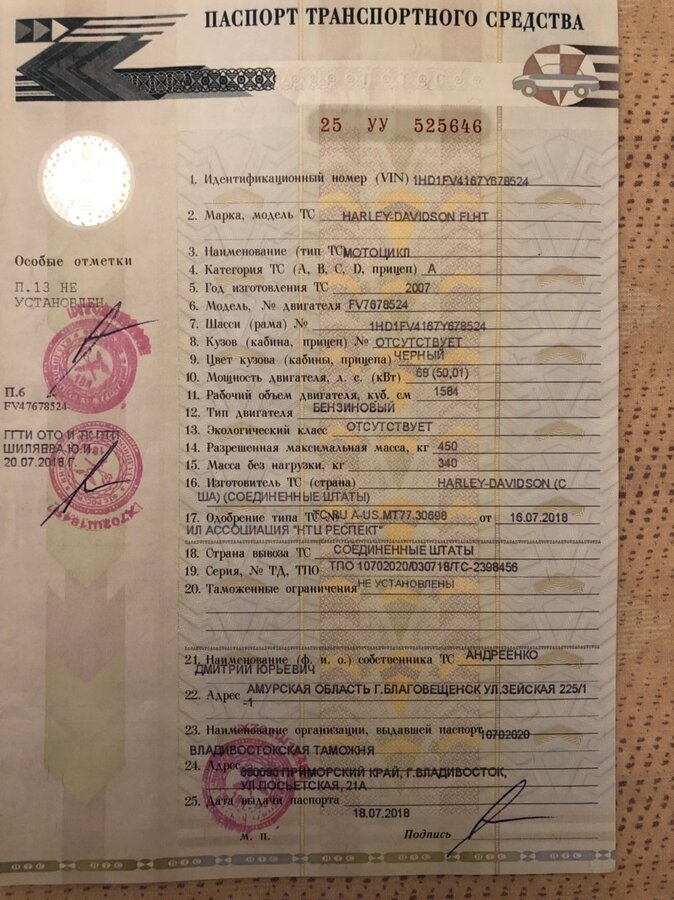 ПАСПОРТ ТРАНСПОРТНОГО СРЕДСТВА
25 УУ 525646
1. Идентификационный номер (VIN) 1HD1FV4167Y678524
2. Марка, модель ТС HARLEY-DAVIDSON FLHT
3. Наименование (тип ТС) МОТОЦИКЛ
4. Категория ТС (А, В, С, D, прицеп) А
5. Год изготовления ТС 2007
6. Модель, № двигателя FV7678524
7. Шасси (рама) № 1HD1FV4167Y678524
8. Кузов (кабина, прицеп) № ОТСУТСТВУЕТ
9. Цвет кузова (кабины, прицепа) ЧЕРНЫЙ
10. Мощность двигателя, л. с. (кВт) 68 (50,01)
11. Рабочий объем двигателя, куб. см 1584
12. Тип двигателя БЕНЗИНОВЫЙ
13. Экологический класс ОТСУТСТВУЕТ
14. Разрешенная максимальная масса, кг 450
15. Масса без нагрузки, кг 340
16. Изготовитель ТС (страна) HARLEY-DAVIDSON (С
ША) (СОЕДИНЕННЫЕ ШТАТЫ)
17. Одобрение типа ТС № ТС RU A-US.МТ77.30698 от 16.07.2018
ИЛ АССОЦИАЦИЯ "НТЦ РЕСПЕКТ"
18. Страна вывоза ТС СОЕДИНЕННЫЕ ШТАТЫ
19. Серия, № ТД, ТПО ТПО 10702020/030718/ТС-2398456
20. Таможенные ограничения НЕ УСТАНОВЛЕНЫ
21. Наименование (ф. и. о.) собственника ТС АНДРЕЕНКО
ДМИТРИЙ ЮРЬЕВИЧ
22. Адрес АМУРСКАЯ ОБЛАСТЬ Г.БЛАГОВЕЩЕНСК УЛ.ЗЕЙСКАЯ 225/1
-1
23. Наименование организации, выдавшей паспорт 10702020
ВЛАДИВОСТОКСКАЯ ТАМОЖНЯ
24. Адрес 690090 ПРИМОРСКИЙ КРАЙ, Г.ВЛАДИВОСТОК,
УЛ.ПОСЬЕТСКАЯ, 21А
25. Дата выдачи паспорта 18.07.2018
М. П. Подпись
Особые отметки
П.13 НЕ
УСТАНОВЛЕН
П.6
FV47678524
ПТИ ОТО И
ШИЛЯЕВА Ю.И.
20.07.2018 Г.